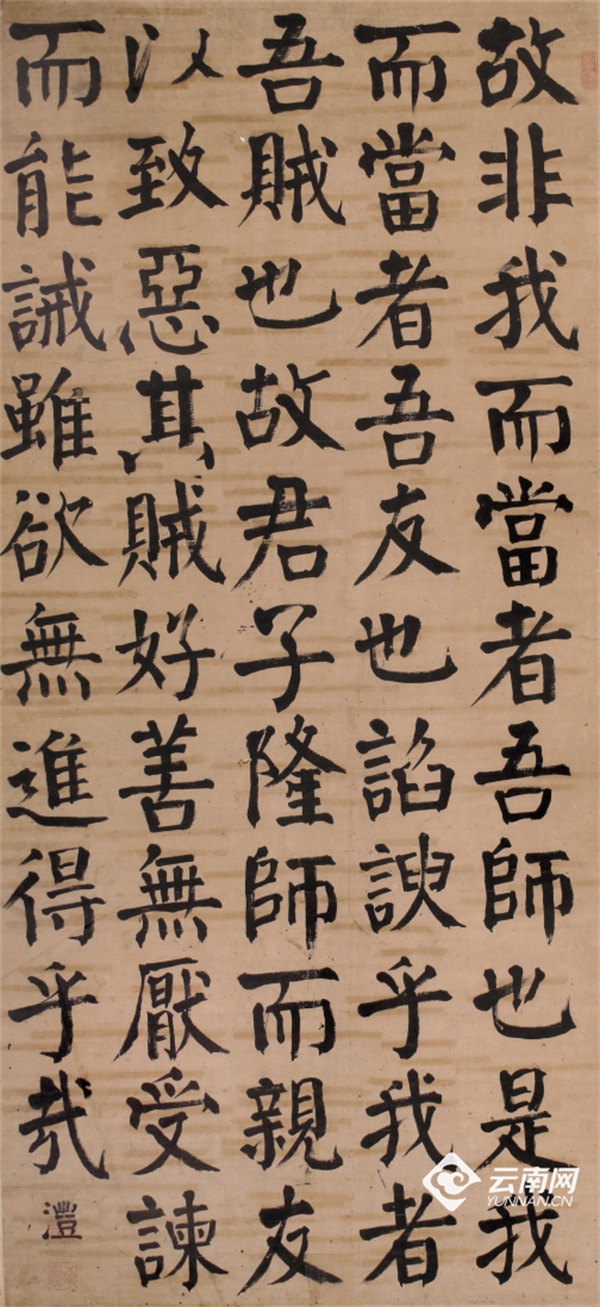 故非我而當者吾師也是我
而當者吾友也諂諛乎我者
吾賊也故君子隆師而親友
以致惡其賊好善無厭受諫
而能誡雖欲無進得乎哉
灃
云南网
YUNNAN.CN